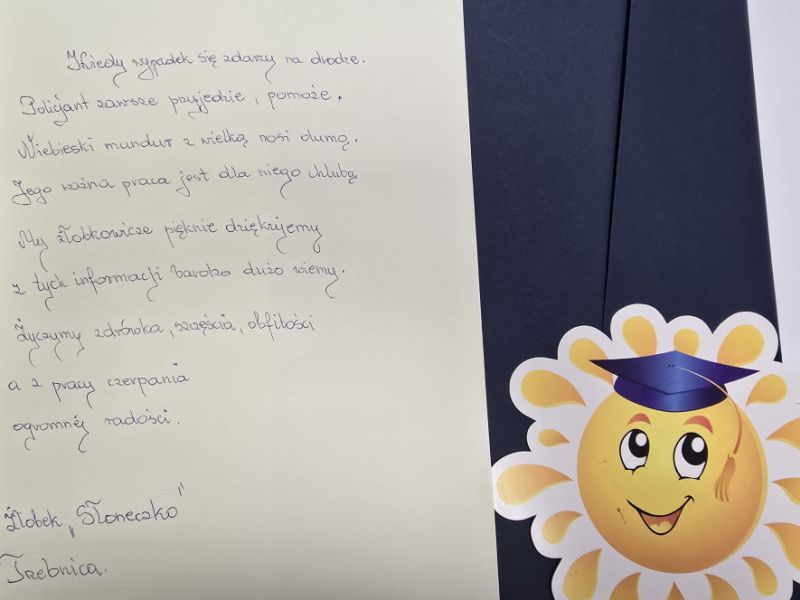 Kiedy wypadek się zdarzy na drodze.
Policjant zawsze przyjedzie, pomoże.
Niebieski mundur z wielką nosi dumą.
Jego ważna praca jest dla niego chlubą.
My żłobkowicze pięknie dziękujemy
z tych informacji bardzo dużo wiemy.
Życzymy zdrówka, szczęścia, obfitości
a z pracy czerpania
ogromnej radości.
Żłobek „Słoneczko"
Trzebnica.